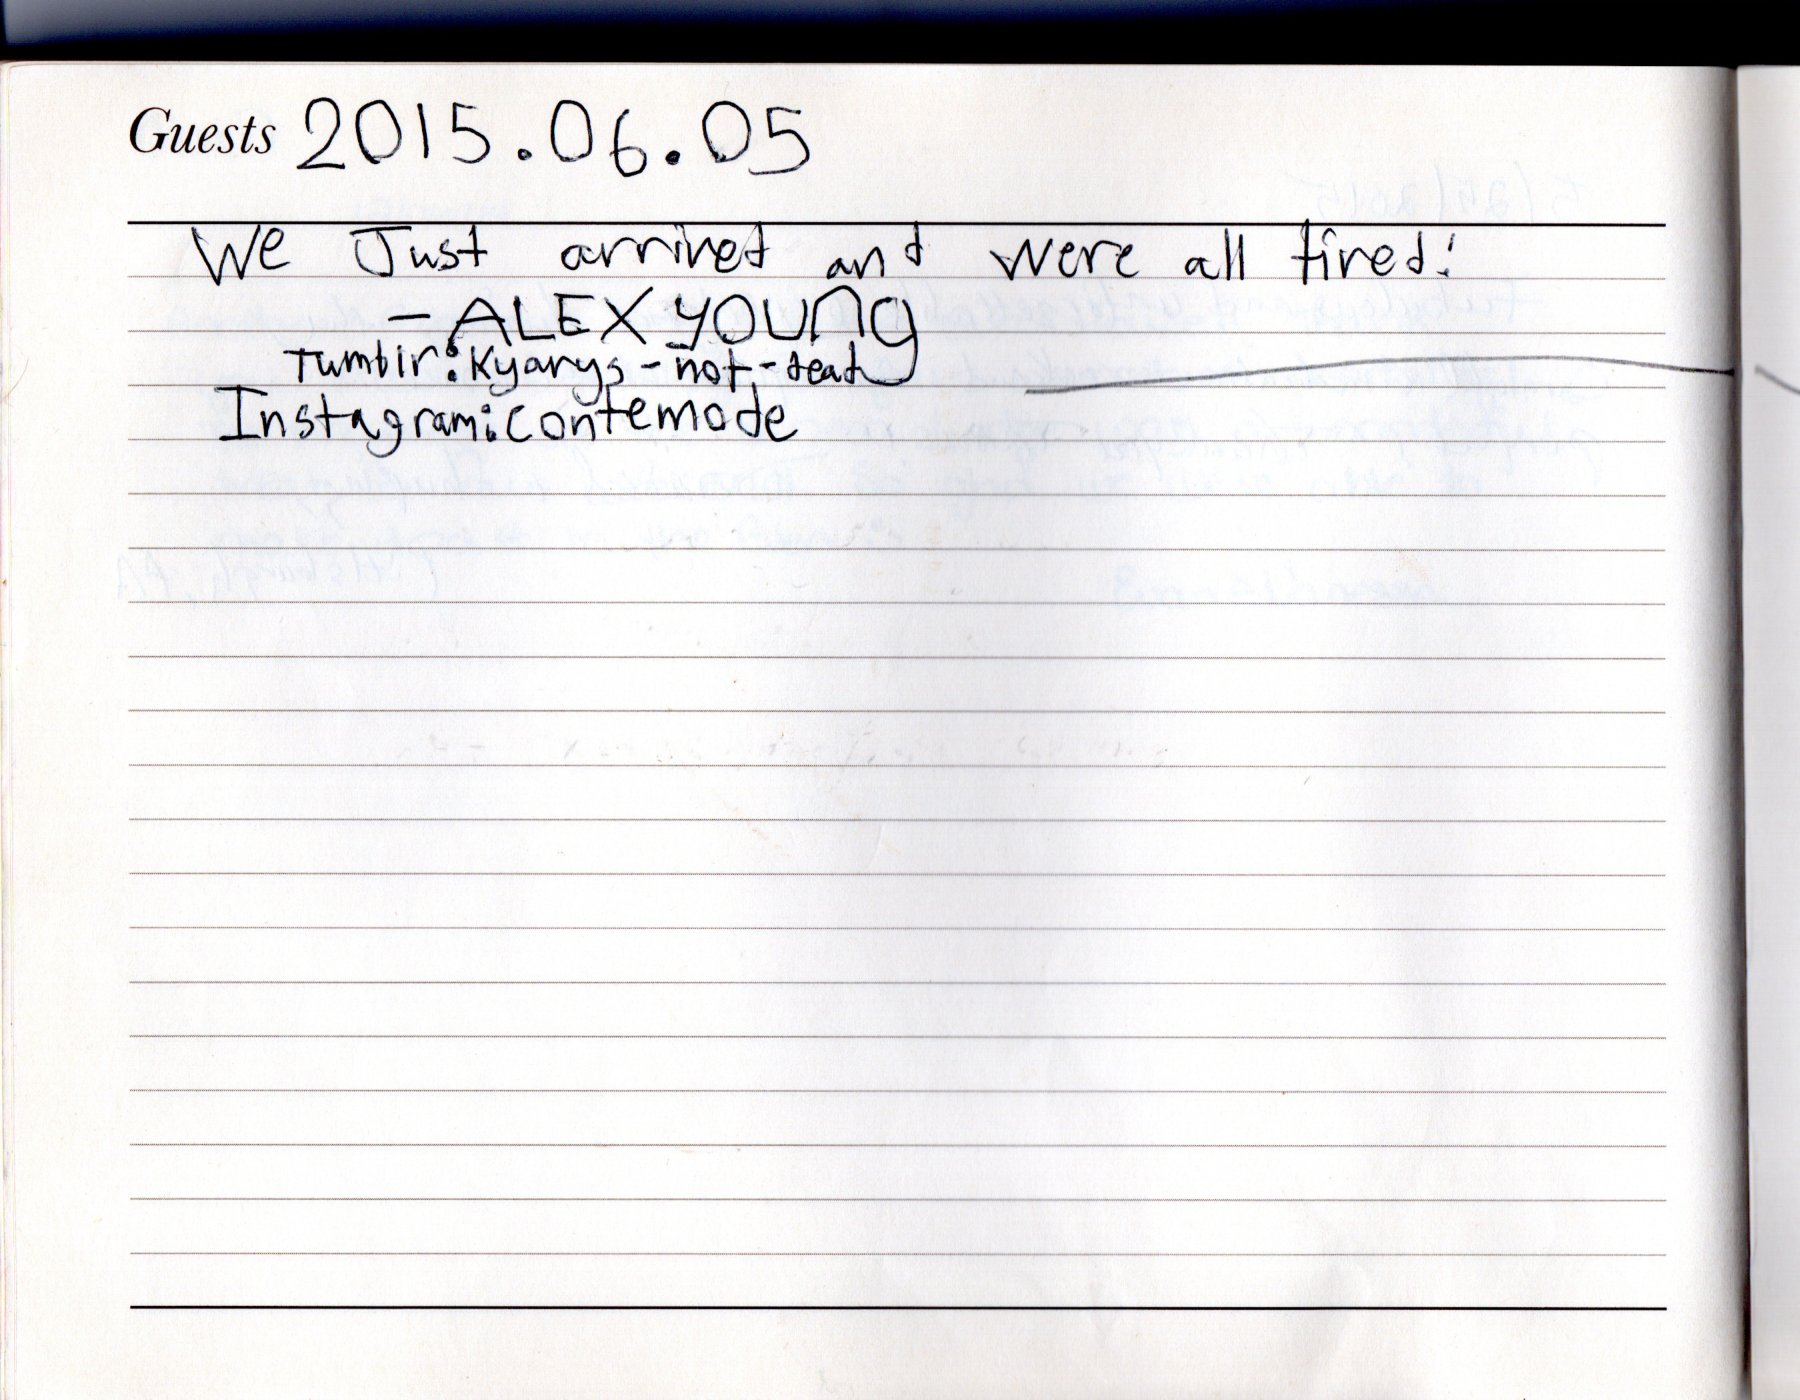 Guests 2015.06.05
We Just arrived and were all tired!
- ALEX YOUNG
Tumblr: Kyarys-not-dead
Instagram: contemode